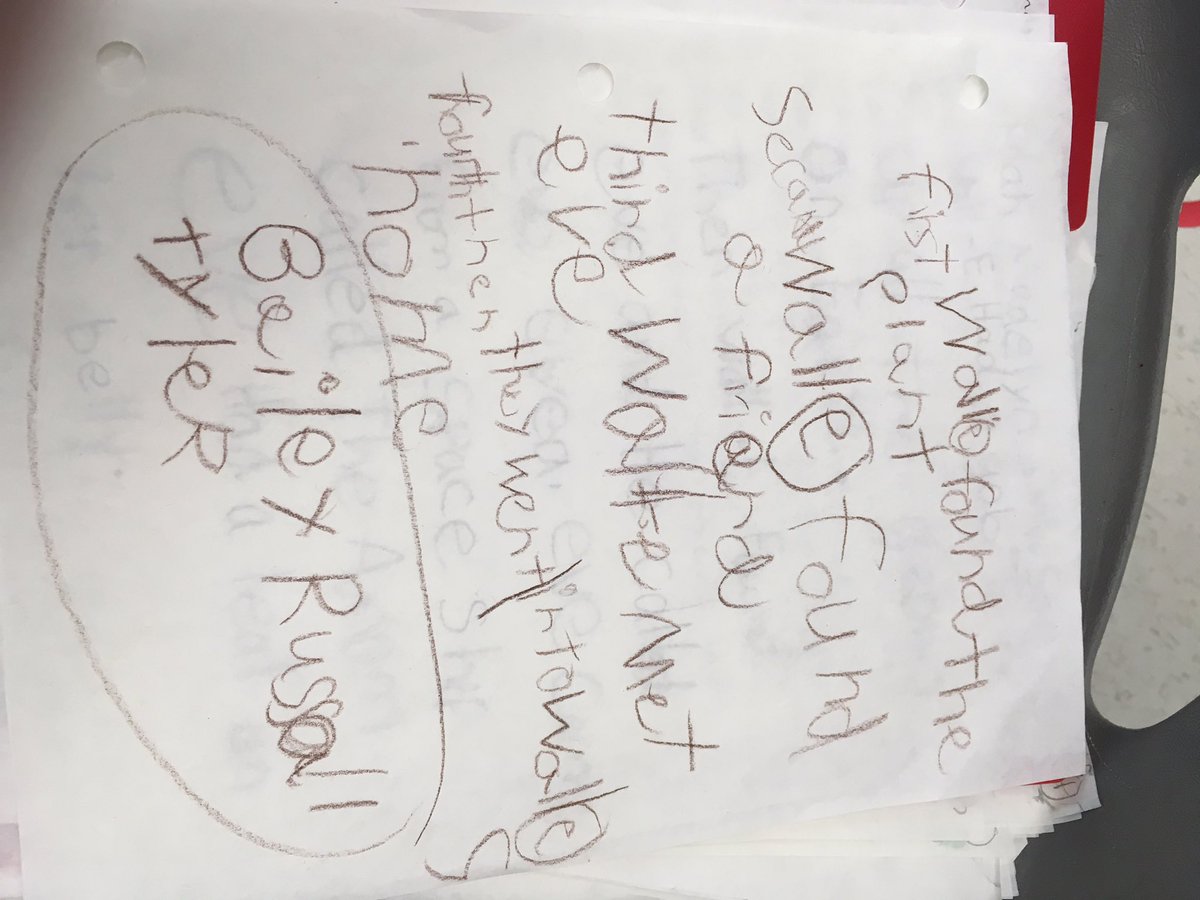 fist Walle found the
plant
secan Walle found
a friend
third Walle Met
eve
fourth then they went into Walle s
home
Bailex Russall
tyleR